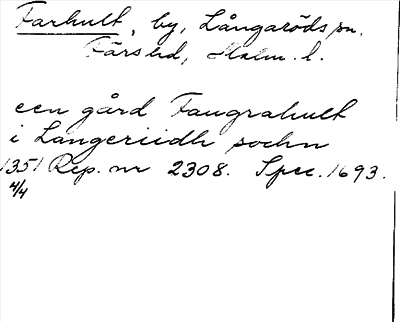 Farhult, by, Långaröds sn.
Färs hd, Malm. l.
een gård Faugrahult
i Langeriidh sochn
1351 Rep. nr 2308. Spec. 1693.
4/4